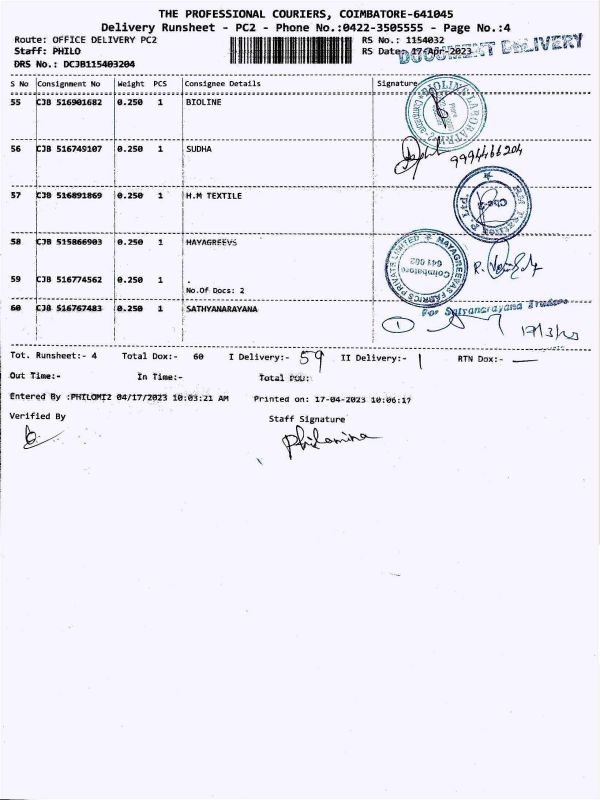 THE PROFESSIONAL COURIERS, COIMBATORE-641045
Delivery Runsheet - PC2 - Phone No.:0422-3505555 - Page No.:4
Route: OFFICE DELIVERY PC2 RS No.: 1154032
Staff: PHILO RS Date: 17-Apr-2023
DOCUMENT DELIVERY
DRS No.: DCJB115403204
S No Consignment No Weight PCS Consignee Details Signature
55 CJB 516901682 0.250 1 BIOLINE
56 CJB 516749107 0.250 1 SUDHA
9994466204
57 CJB 516891869 0.250 1 H.M TEXTILE
58 CJB 515866903 0.250 1 HAYAGREEVS
HAYAGREEVAS FABRICS PRIVATE LIMITED
Coimbatore
641 002
59 CJB 516774562 0.250 1 .
No.Of Docs: 2
60 CJB 516767483 0.250 1 SATHYANARAYANA
For Satyanarayana Traders
1
17/3/23
Tot. Runsheet:- 4 Total Dox:- 60 I Delivery:- 59 II Delivery:- 1 RTN Dox:- —
Out Time:- In Time:- Total POD:
Entered By :PHILOMI2 04/17/2023 10:03:21 AM Printed on: 17-04-2023 10:06:17
Verified By Staff Signature
Philomina